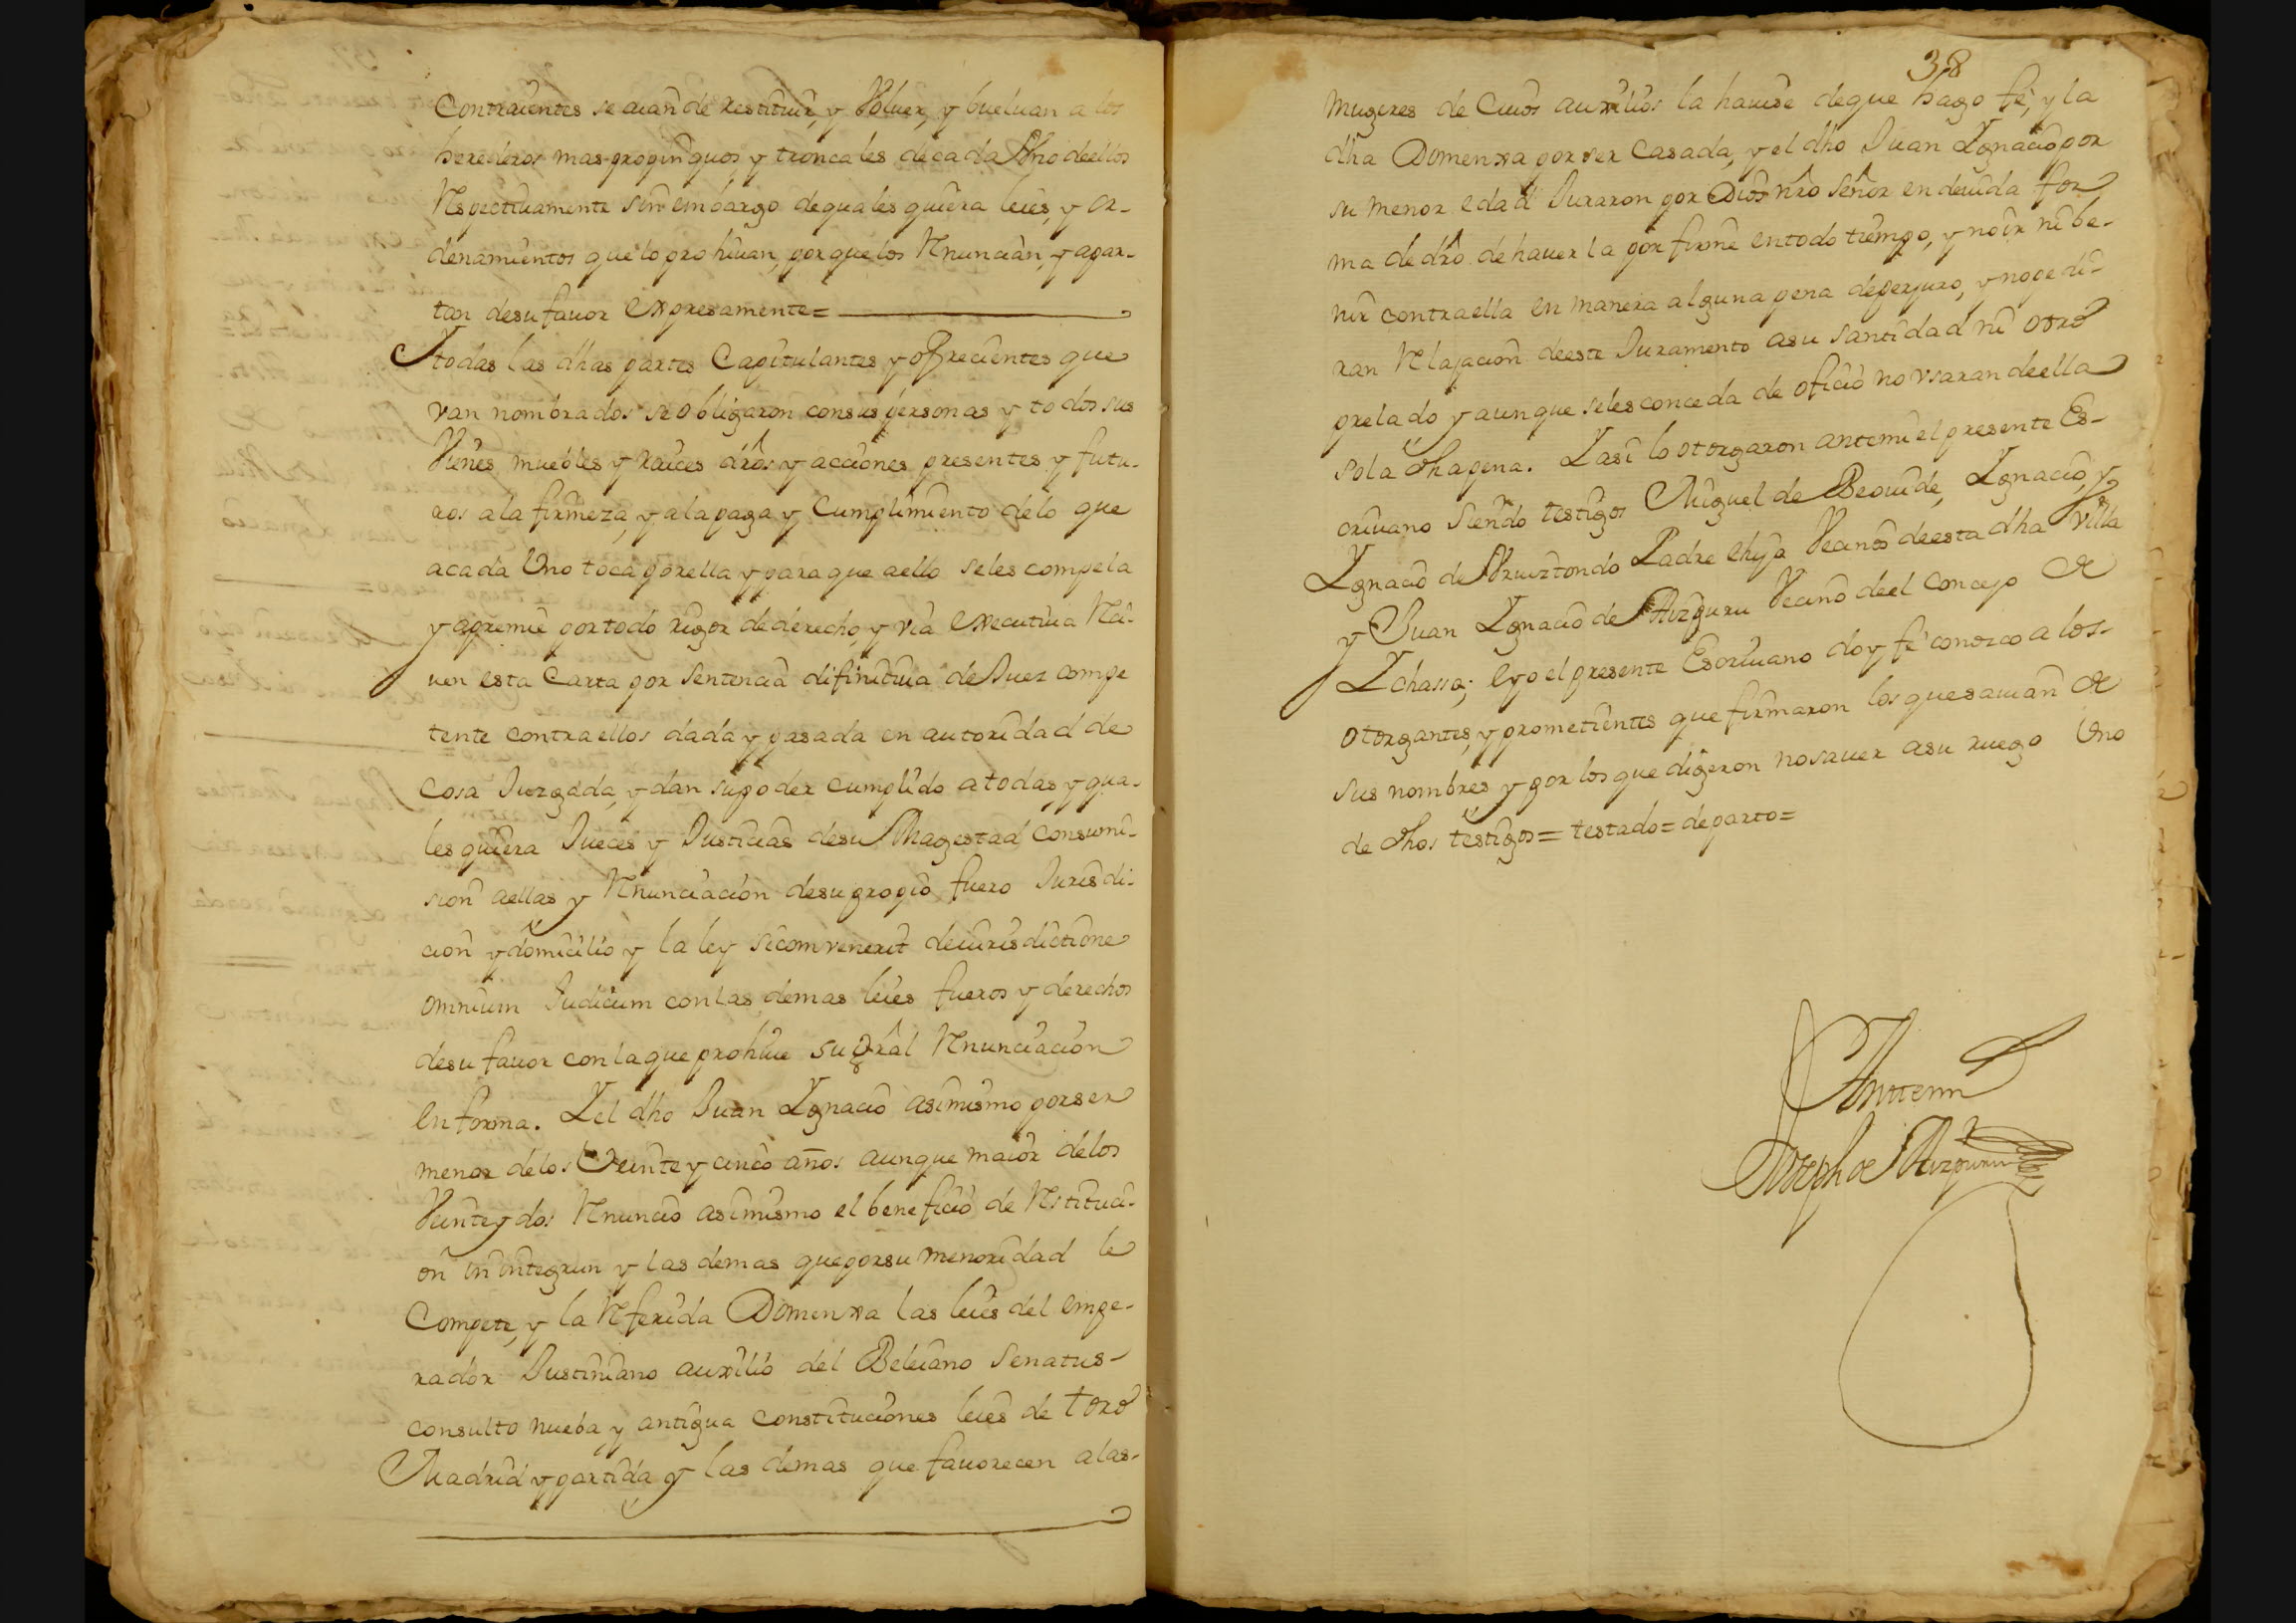 Contraientes se aian de restituir, y Voluer, y bueluan a los
herederos mas propinquos y troncales de cada Vno deellos
Respectiuamente sin embargo de quales quiera leies, y or-
denamientos que lo prohiuan, porque los Renuncian, y apar-
tan desu fauor expresamente=
I todas las dhas partes Capitulantes y ofrecientes que
van nombrados se obligaron con sus personas y todos sus
Vienes muebles y raices dros y acciones presentes y futu-
ros ala firmeza, y ala paga y Cumplimiento delo que
acada Vno toca por ella y para que aello seles compela
y apremie por todo rigor de derecho, y via executiua Reci-
uen esta Carta por Sentencia difinitiua de Juez compe
tente contra ellos dada y pasada en autoridad de
cosa Juzgada, y dan su poder cumplido a todas y qua-
les quiera Jueces y Justicias desu Magestad consumi-
sion aellas y Renunciacion desu propio fuero Jurisdi-
cion y domicilio y la ley sicomvenerit deiurisdictione
omnium Judicum con las demas leies fueros y derechos
desu fauor con la que prohiue su gral Renunciacion
en forma. I el dho Juan Ignacio asimismo por ser
menor de los Veinte y cinco años aunque maior delos
Veinte y dos Renuncio asimismo el beneficio de Restituci-
on in integrun y las demas que por su menoridad le
Compete, y la Referida Domenxa las leies del empe-
rador Justiniano auxilio del Beleiano Senatus-
consulto nueba y antigua constituciones leies de toro
Madrid y partida y las demas que fauorecen alas-
38
mugeres de Cuios auxilios la hauise deque hago fé, y la
dha Domenxa por ser Casada, y el dho Juan Ignacio por
su menor edad Juraron por Dios nro Señor en deuida for
ma de dro de hauerla por firme en todo tiempo, y no ir ni be-
nir contra ella en manera alguna pena de perjuro, y no pedi-
ran Relajacion deeste Juramento asu Santidad ni otro
prelado y aunque seles conceda de oficio no vsaran deella
sola dha pena. I asi lo otorgaron antemi el presente Es-
criuano Siendo testigos Miguel de Beouide, Ignacio, y
Ignacio de Vruiztondo Padre e hijo Vecinos deesta dha villa
y Juan Ignacio de Aizpuru Vecino deel Concejo de
Ichasso; e yo el presente Escriuano doy fé conozco a los-
otorgantes, y prometientes que firmaron los que sauian de
sus nombres y por los que digeron no sauer asu ruego Vno
de dhos testigos= testado= de parto=
Antemi
Joseph de Aizpuru